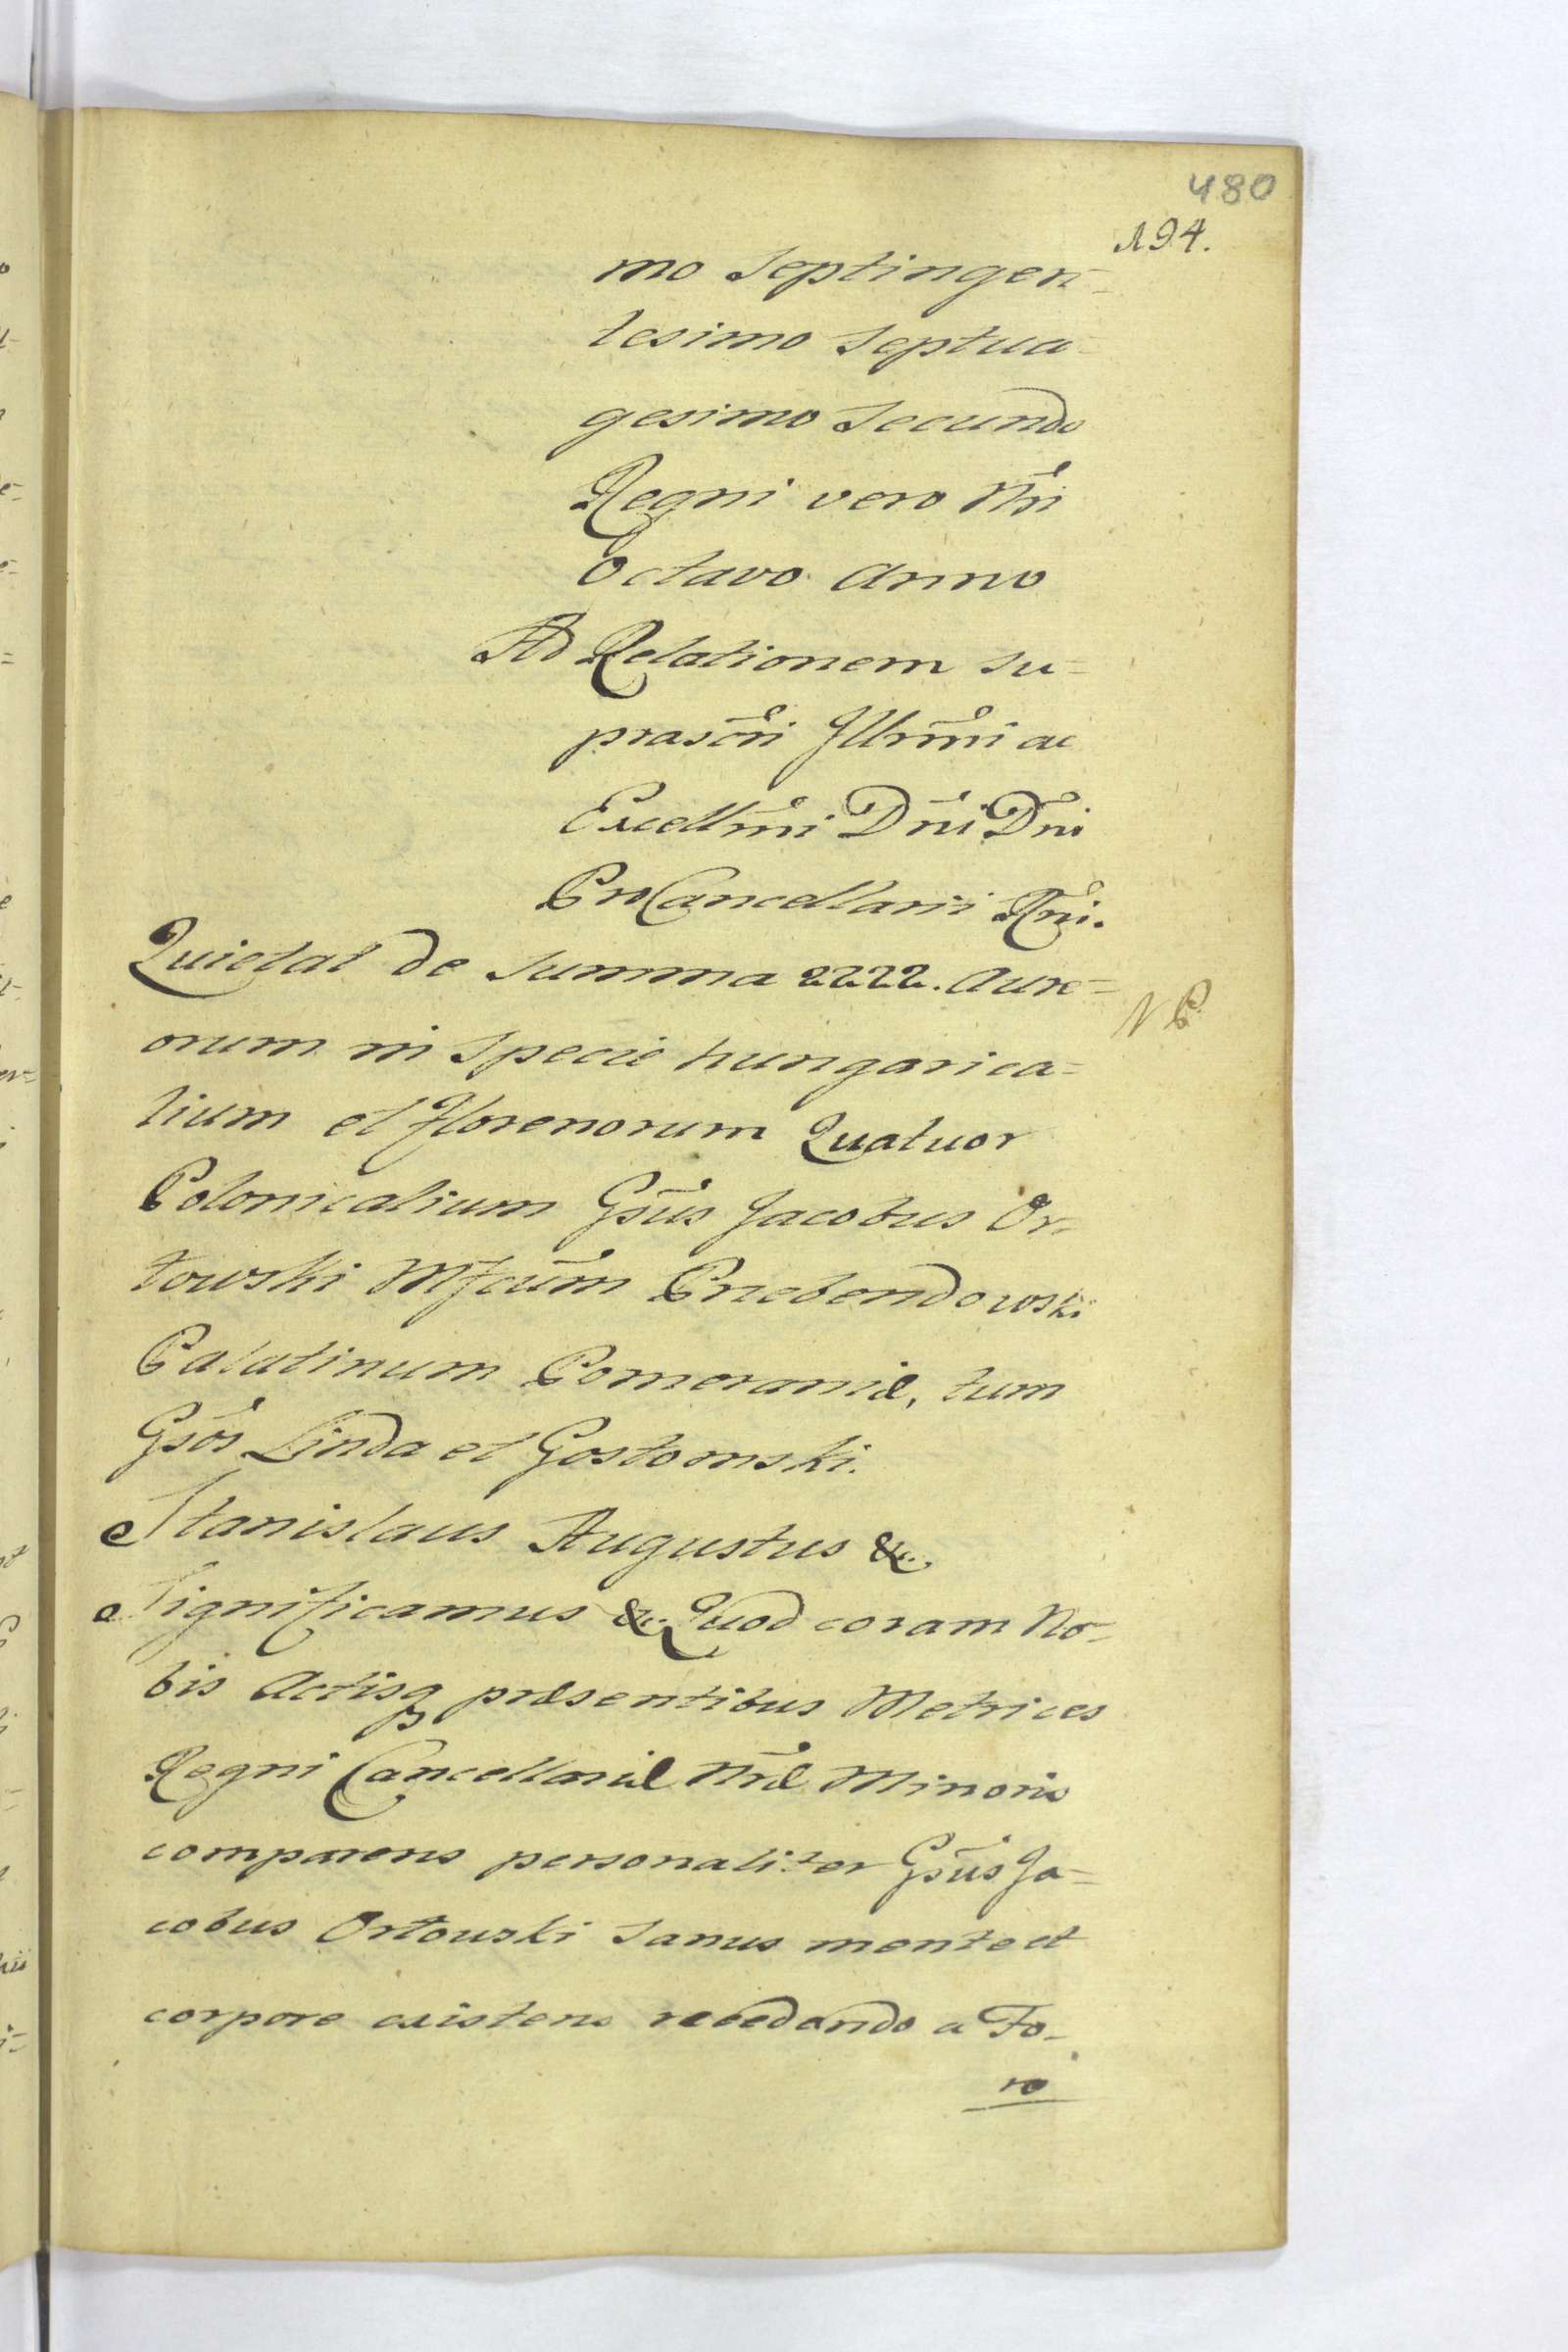 480
194.
mo Septingen=
tesimo Septua=
gesimo Secundo
Regni vero Nr̃i
Octavo Anno
Ad Relationem su=
prascr̃i Illr̃mi ac
Excell̃mi Dñi Dñi
ProCancellarii Rñi.
Quietat de Summa 2222. Aure=
orum in Specie hungarica=
lium et Florenorum Quatuor
Polonicalium Gsũs Jacobus Or=
łowski Mfcũm Przebendowski
Palatinum Pomeraniæ, tum
Gsõs Linda et Gostomski.
NP
Stanislaus Augustus &c.
Significamus &c. Quod coram No=
bis Actisq præsentibus Metrices
Regni Cancellariæ Nr̃æ Minoris
comparens personaliter Gsũs Ja=
cobus Orłowski Sanus mente et
corpore existens recedendo a Fo=
ro